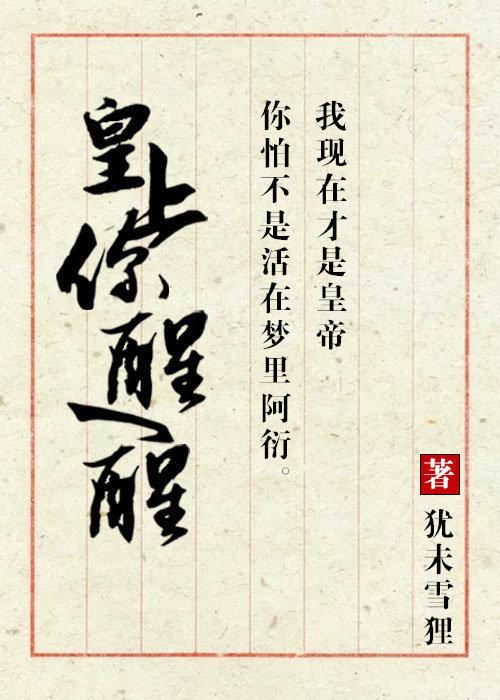 著
犹未雪狸
我现在才是皇帝
你怕不是活在梦里阿衍。
皇上你醒一醒